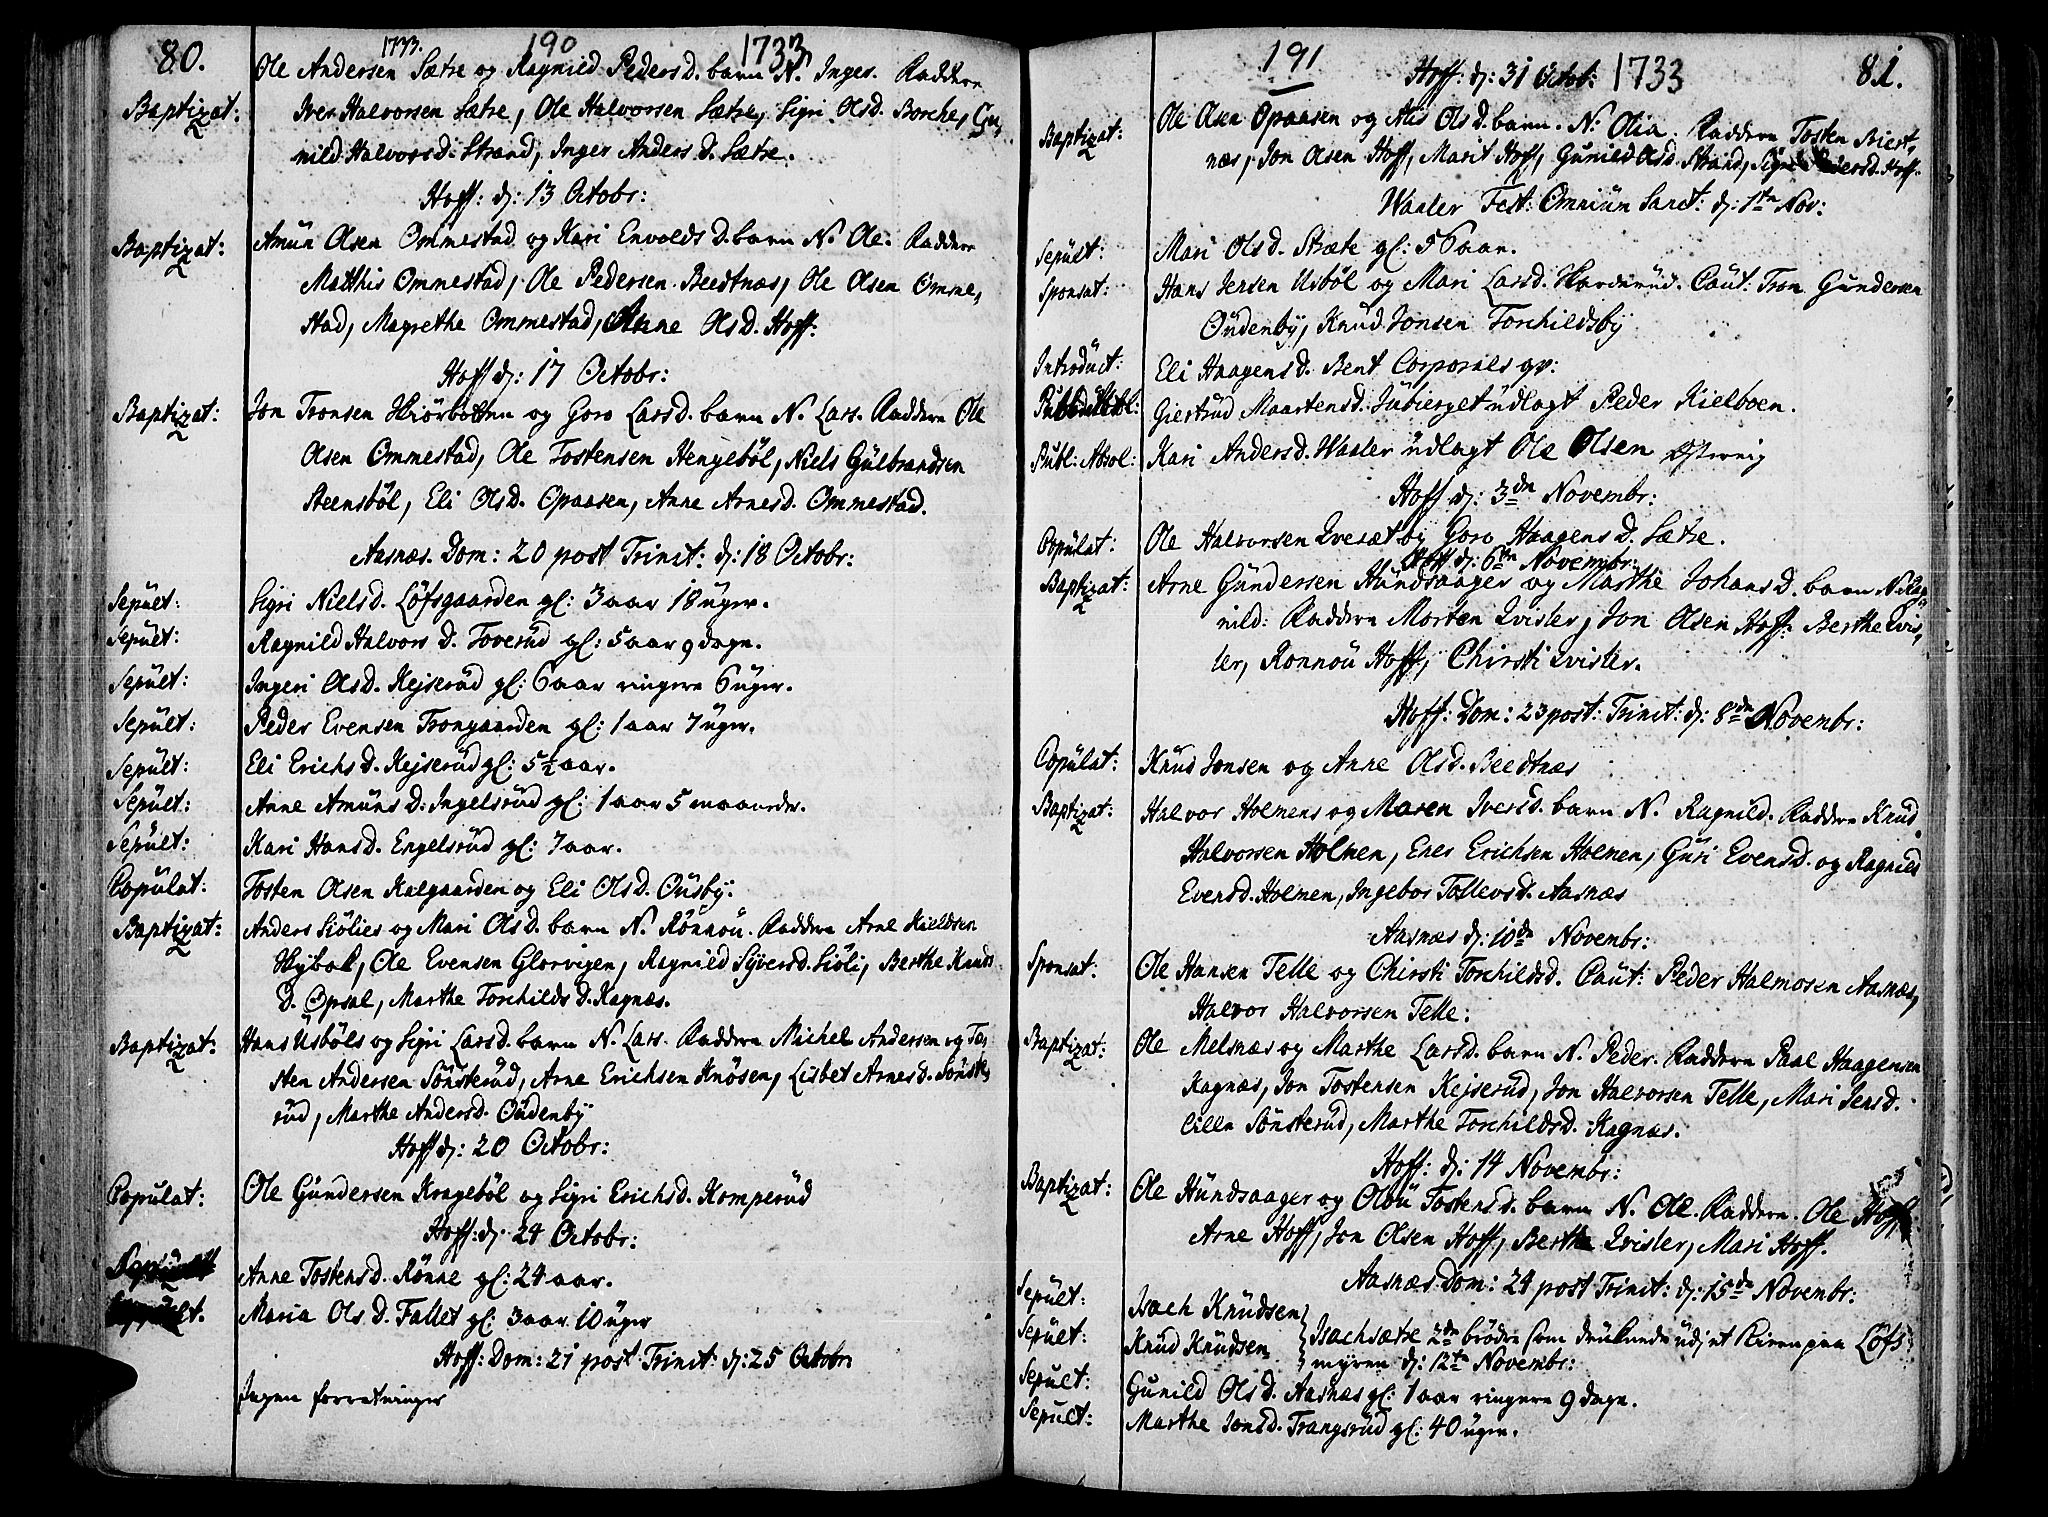 80. 1733. 190 1733
Ole Andersen Sætre og Ragnild Pedersd. barn N. Inger. Faddere
Baptizat: Iver Halvorsen Sætre, Ole Halvorsen Sætre, Sigri Olsd. Borche, Gu,
nild Halvorsd. Strand, Inger Andersd. Sætre.
Hoff: d: 13 Octobr:
Baptizat: Amün Olsen Ommestad og Kari Envoldsd. barn N. Ole. Faddere
Matthis Ommestad, Ole Pedersen Beedtnæs, Ole Olsen Omme,
stad, Magrethe Ommestad, Anne Olsd. Hoff.
Hoff d: 17 Octobr:
Baptizat: Jon Tronsen Skiörbotten og Goro Larsd. barn N. Lars. Faddere Ole
Olsen Ommestad, Ole Tostensen Hengeböl, Niels Gülbrandsen
Steensböl, Eli Olsd. Opaasen, Anne Arnesd. Ommestad.
Aasnæs. Dom: 20 post Trinit: d: 18 Octobr:
Sepült: Sigri Nielsd. Löfsgaarden gl: 3 aar 18 uger.
Sepült: Ragnild Halvorsd. Toverüd gl: 5 aar 9 dage.
Sepült: Ingeri Olsd. Kejserüd gl: 6 aar ringere 6 uger.
Sepült: Peder Evensen Trongaarden gl: 1 aar 7 uger.
Sepült: Eli Erichsd. Kejserüd gl: 5½ aar.
Sepült: Anne Amünsd: Ingelsrüd gl: 1 aar 5 maaneder.
Sepült: Kari Hansd. Engelsrüd gl: 7 aar.
Copülat: Tosten Olsen Kalgaarden og Eli Olsd. Oüsby.
Baptizat: Anders Siölies og Mari Olsd. barn N. Rönnou. Faddere Arne Kieldsen
Skybak, Ole Evensen Glorvigen, Ragnild Syversd. Siöli, Berthe Knuds
d. Opsal, Marthe Torchildsd. Kagnæs.
Baptizat: Hans Usböls og Sigri Larsd. barn N. Lars. Faddere Michel Andersen og To,
sten Andersen Sönsterüd, Arne Erichsen Knösen, Lisbet Arnesd. Sönste,
rüd, Marthe Andersd. Oüdenby
Hoff d: 20 Octobr:
Copulat: Ole Gündersen Krageböl og Sigri Erichsd. Komperüd
Hoff: d: 24 Octobr:
Anne Tostensd. Rönne gl: 24 aar.
Maria Olsd. Fallet gl: 3 aar 10 uger
Hoff: Dom: 21 post Trinit: d: 25 Octobr:
Ingen forretninger
191 Hoff: d: 31 Octob: 1733 81.
Baptizat: Ole Olsen Opaasen og Alis Olsd. barn. N. Olia. Faddere Tosten Biert,
næs, Jon Olsen Hoff, Marit Hoff, Gunild Olsd. Strand, Pedersd. Hoff.
Waaler Fest: Omniün Sanct: d: 1ste Nov:
Sepült: Mari Olsd. Stræte gl: 56 aar.
Sponsat: Hans Jensen Usböl og Mari Larsd. Skarderud. Caut. Tron Gundersen
Oüdenby, Knud Jonsen Torchildsby
Introdüct: Eli Haagensd. Bent Corporals qv:
Giertrüd Maartensd. Jübierget üdlagt Peder Kielboen.
Publ: Absol: Kari Andersd. Waaler üdlagt Ole Olsen
Hoff d: 3dn Novembr:
Copülat: Ole Halvorsen Qvesæt og Goro Haagensd. Sætre.
Hoff d: 6tn Novembr:
Baptizat: Arne Gündersen Hündsaager og Marthe Johansd. barn N. Rag,
nild: Faddere Morten Qvisler, Jon Olsen Hoff. Berthe Qvis,
ler, Ronnou Hoff, Chirsti Qvisler.
Hoff: Dom: 23 post: Trinit: d: 8dn Novembr:
Copülat: Knud Jonsen og Anne Olsd. Beedtnæs
Baptizat: Halvor Holmens og Maren Iversd. barn N. Ragnild. Faddere Knud
Halvorsen Holmen, Ener Erichsen Holmen, Güri Evensd. og Ragnild
Evensd. Holmen, Ingebor Tollevsd. Aasnæs
Aasnæs d: 10de Novembr:
Sponsat: Ole Hansen Telle og Chirsti Torchildsd. Caut: Peder Halmosen Aasnæs,
Halvor Halvorsen Telle:
Baptizat: Ole Melsnæs og Marthe Larsd. barn N. Peder. Faddere Paal Haagensen
Kagnæs, Jon Tostensen Kejserüd, Jon Halvorsen Telle, Mari Jensd.
Lille Sönsterüd, Marthe Torchildsd. Kagnæs.
Hoff: d: 14 Novembr:
Baptizat: Ole Hündsaager og Oloü Tostensd. barn N. Ole. Faddere. Ole Hoff
Arne Hoff, Jon Olsen Hoff, Berthe Qvisler, Mari Hoff.
Aasnæs. Dom: 24 post Trinit: d: 15dn Novembr:
Sepült: Isach Knüdsen
Sepült: Knud Knüdsen } Isachsætre 2de brödre som druknede üdj et Kiren paa Löfs
myren d: 12te Novembr:
Sepült: Gunild Olsd. Aasnæs gl: 1 aar ringere 9 dage.
Sepült: Marthe Jonsd. Trangsrüd gl: 40 uger.